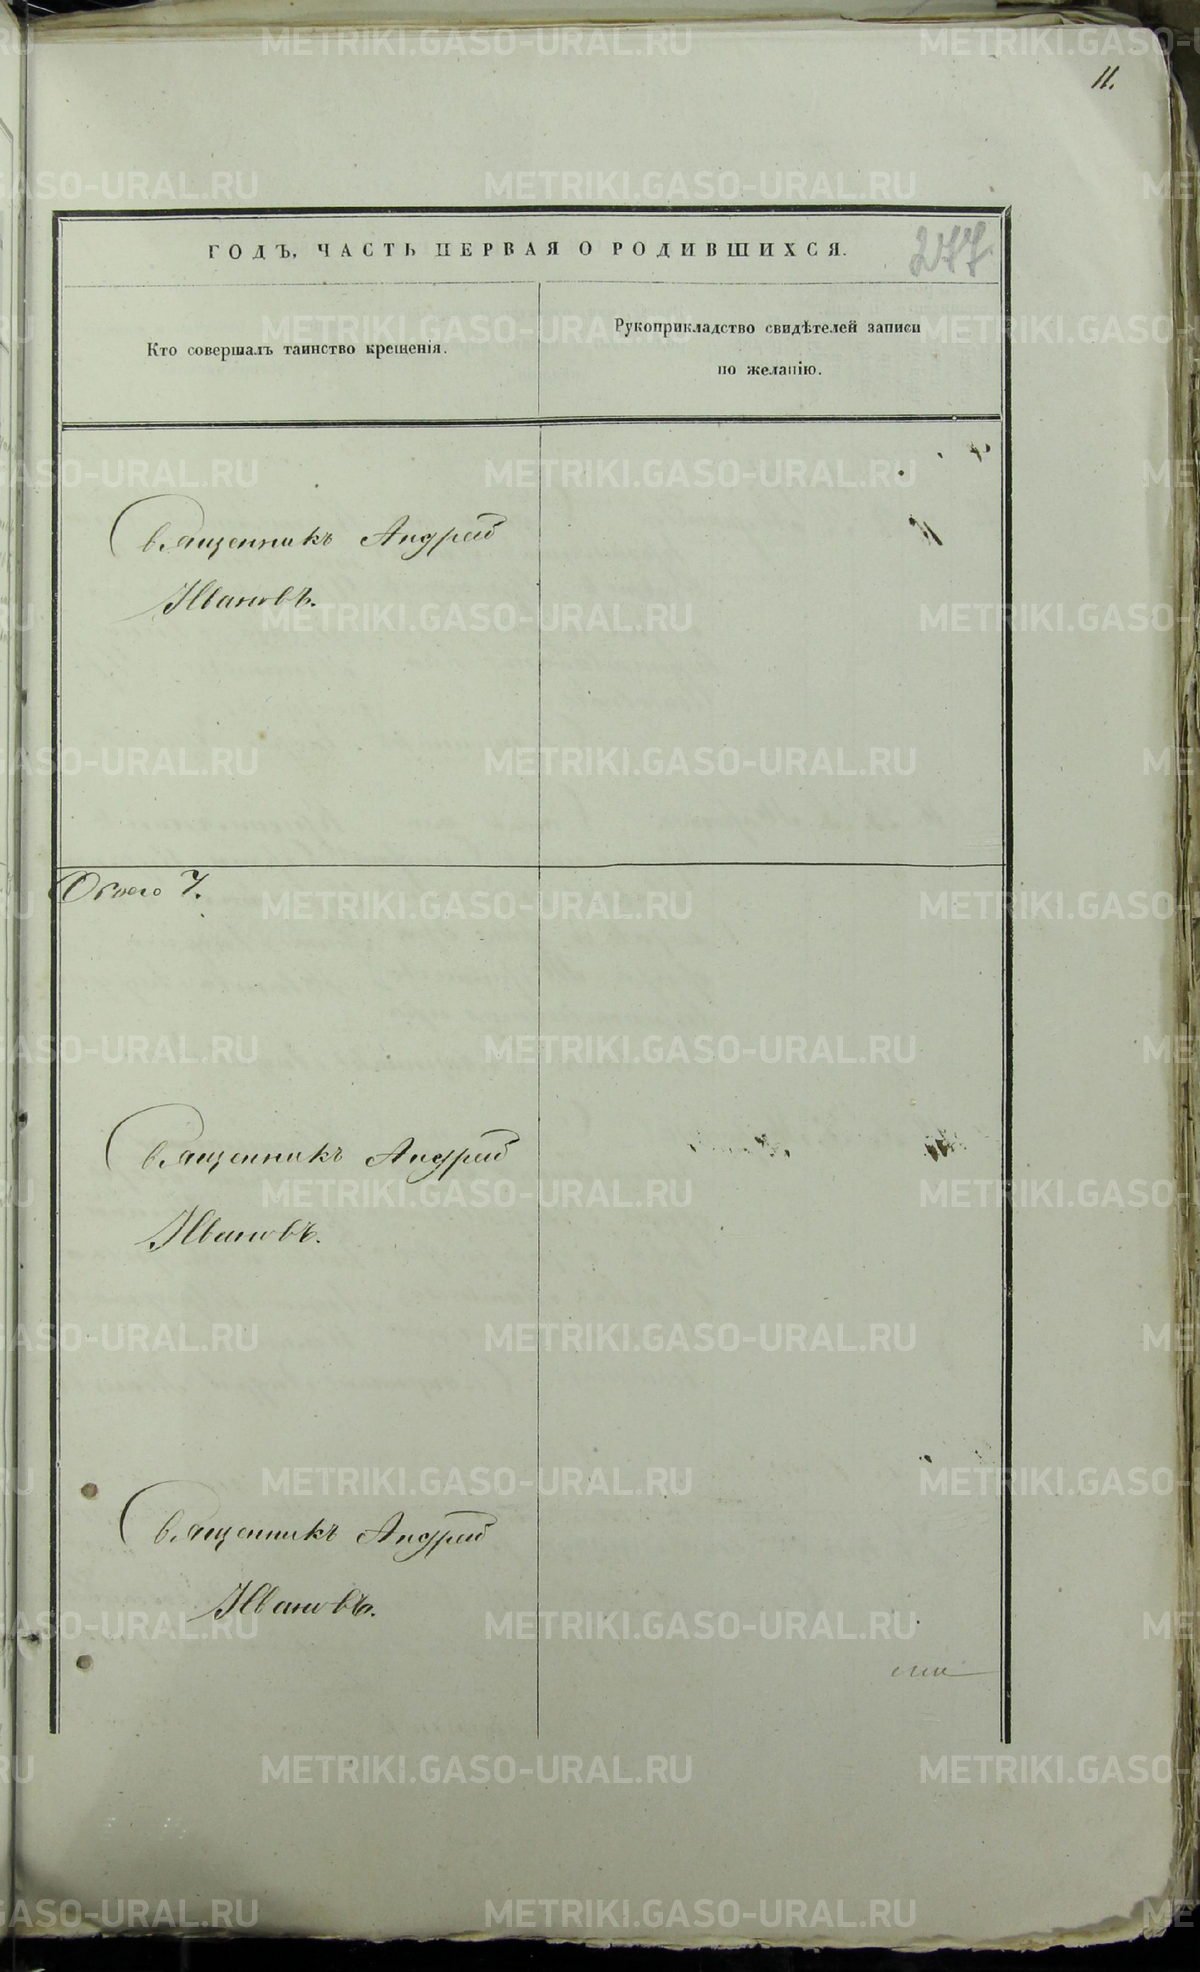 11.
ГОДЪ, ЧАСТЬ ПЕРВАЯ О РОДИВШИХСЯ.
277
Кто совершалъ таинство крещенія.
Рукоприкладство свидѣтелей записи
по желанію.
Священникъ Андрей
Ивановъ.
7.
Священникъ Андрей
Ивановъ.
Священникъ Андрей
Ивановъ.
METRIKI.GASO-URAL.RU